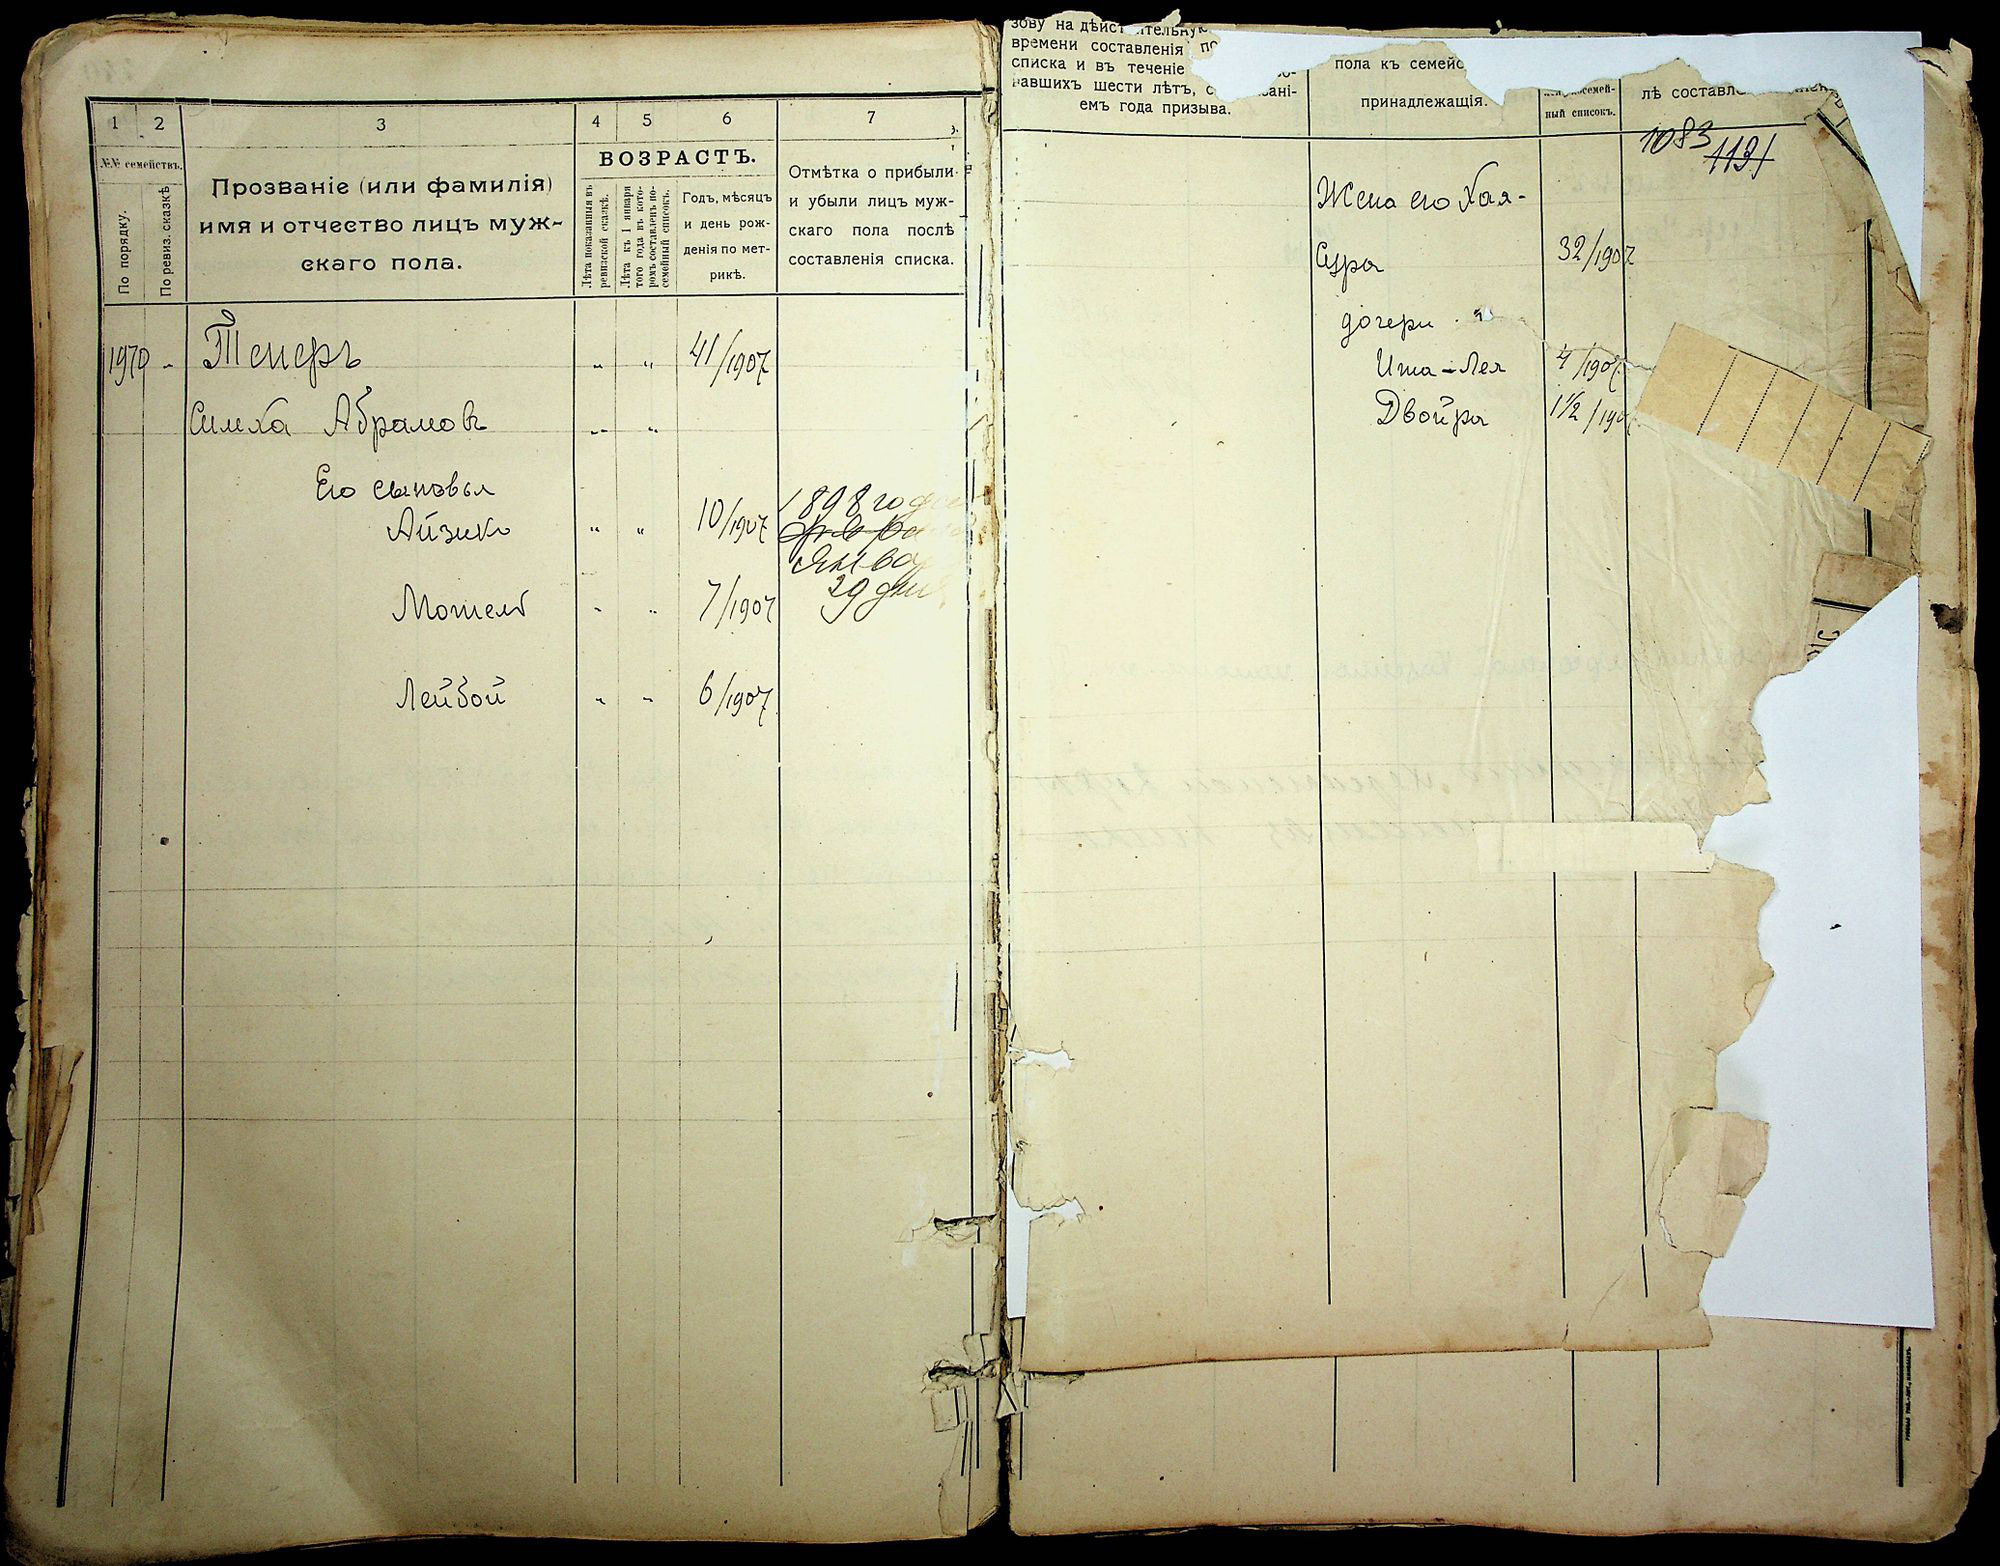 1 2 3 4 5 6 7
№№ семействъ.
По порядку.
По ревиз. сказкѣ
Прозваніе (или фамилія)
имя и отчество лицъ муж-
скаго пола.
ВОЗРАСТЪ.
Лѣта показанныя въ
ревизской сказкѣ.
Лѣта къ 1 января
того года въ кото-
ромъ составленъ по-
семейный списокъ.
Годъ, мѣсяцъ
и день рож-
денія по мет-
рикѣ.
Отмѣтка о прибыли
и убыли лицъ муж-
скаго пола послѣ
составленія списка.
1970 - Темеръ " " 41/1907
Симха Абрамовъ " "
Его сыновья
Айзикъ " " 10/1907
1898 года
Янва
29 дня
Мотель " " 7/1907
Лейбой " " 6/1907
зову на дѣйст ительную
времени составленія по
списка и въ теченіе
навшихъ шести лѣтъ, с зані-
емъ года призыва.
пола къ семейс
принадлежащія.
ный списокъ.
лѣ составл
1083 1131
Жена его Хая-
Сура 32/1907
дочери
Ита-Лея 4/1907
Двойра 1 1/2/190